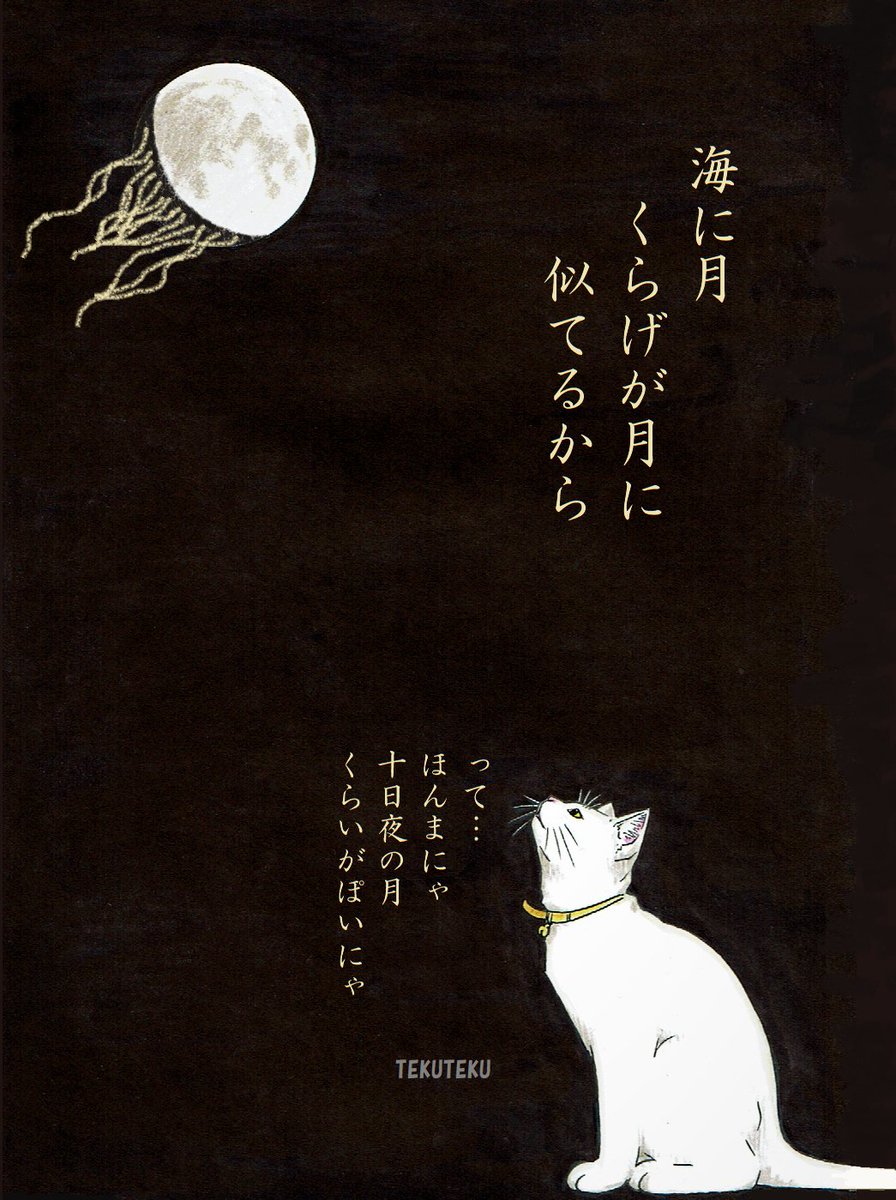 海に月
くらげが月に
似てるから
って…
ほんまにゃ
十日夜の月
くらいがぽいにゃ
TEKUTEKU